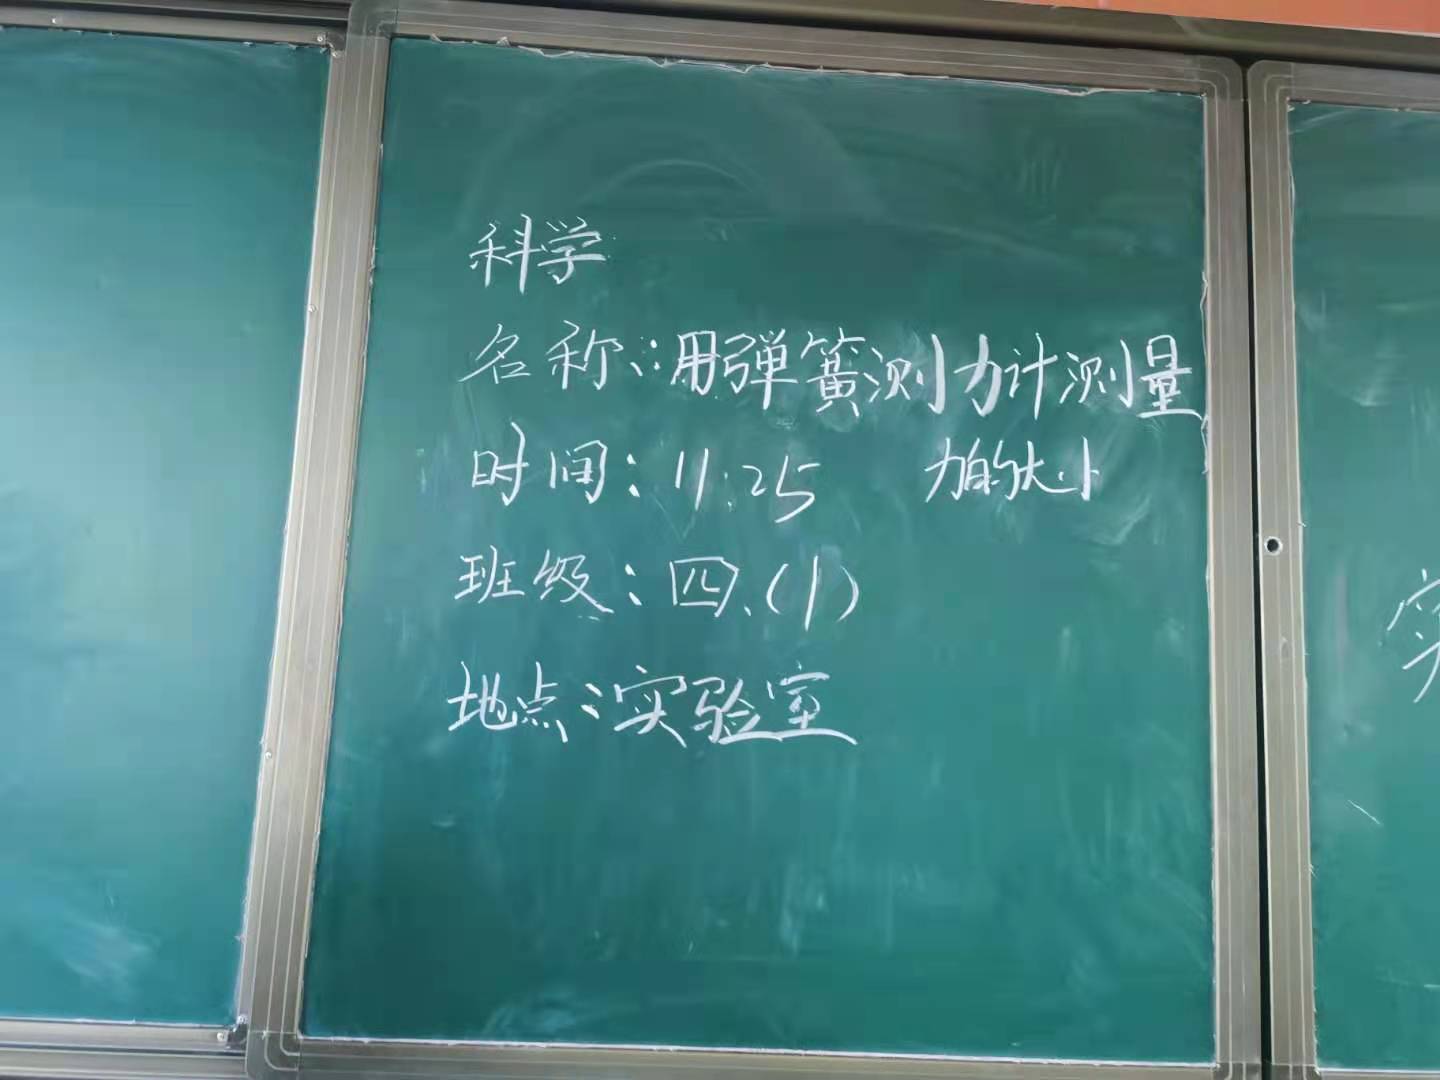 科学
名称：用弹簧测力计测量
力的大小
时间：11:25
班级：四、(1)
地点：实验室
实